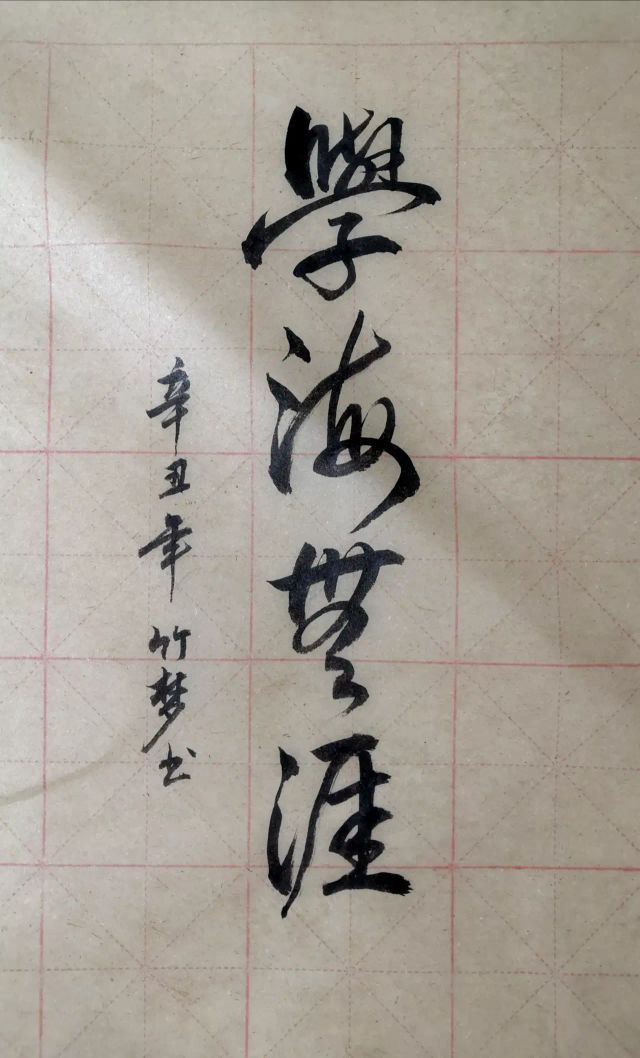 學海無涯
辛丑年竹梦书